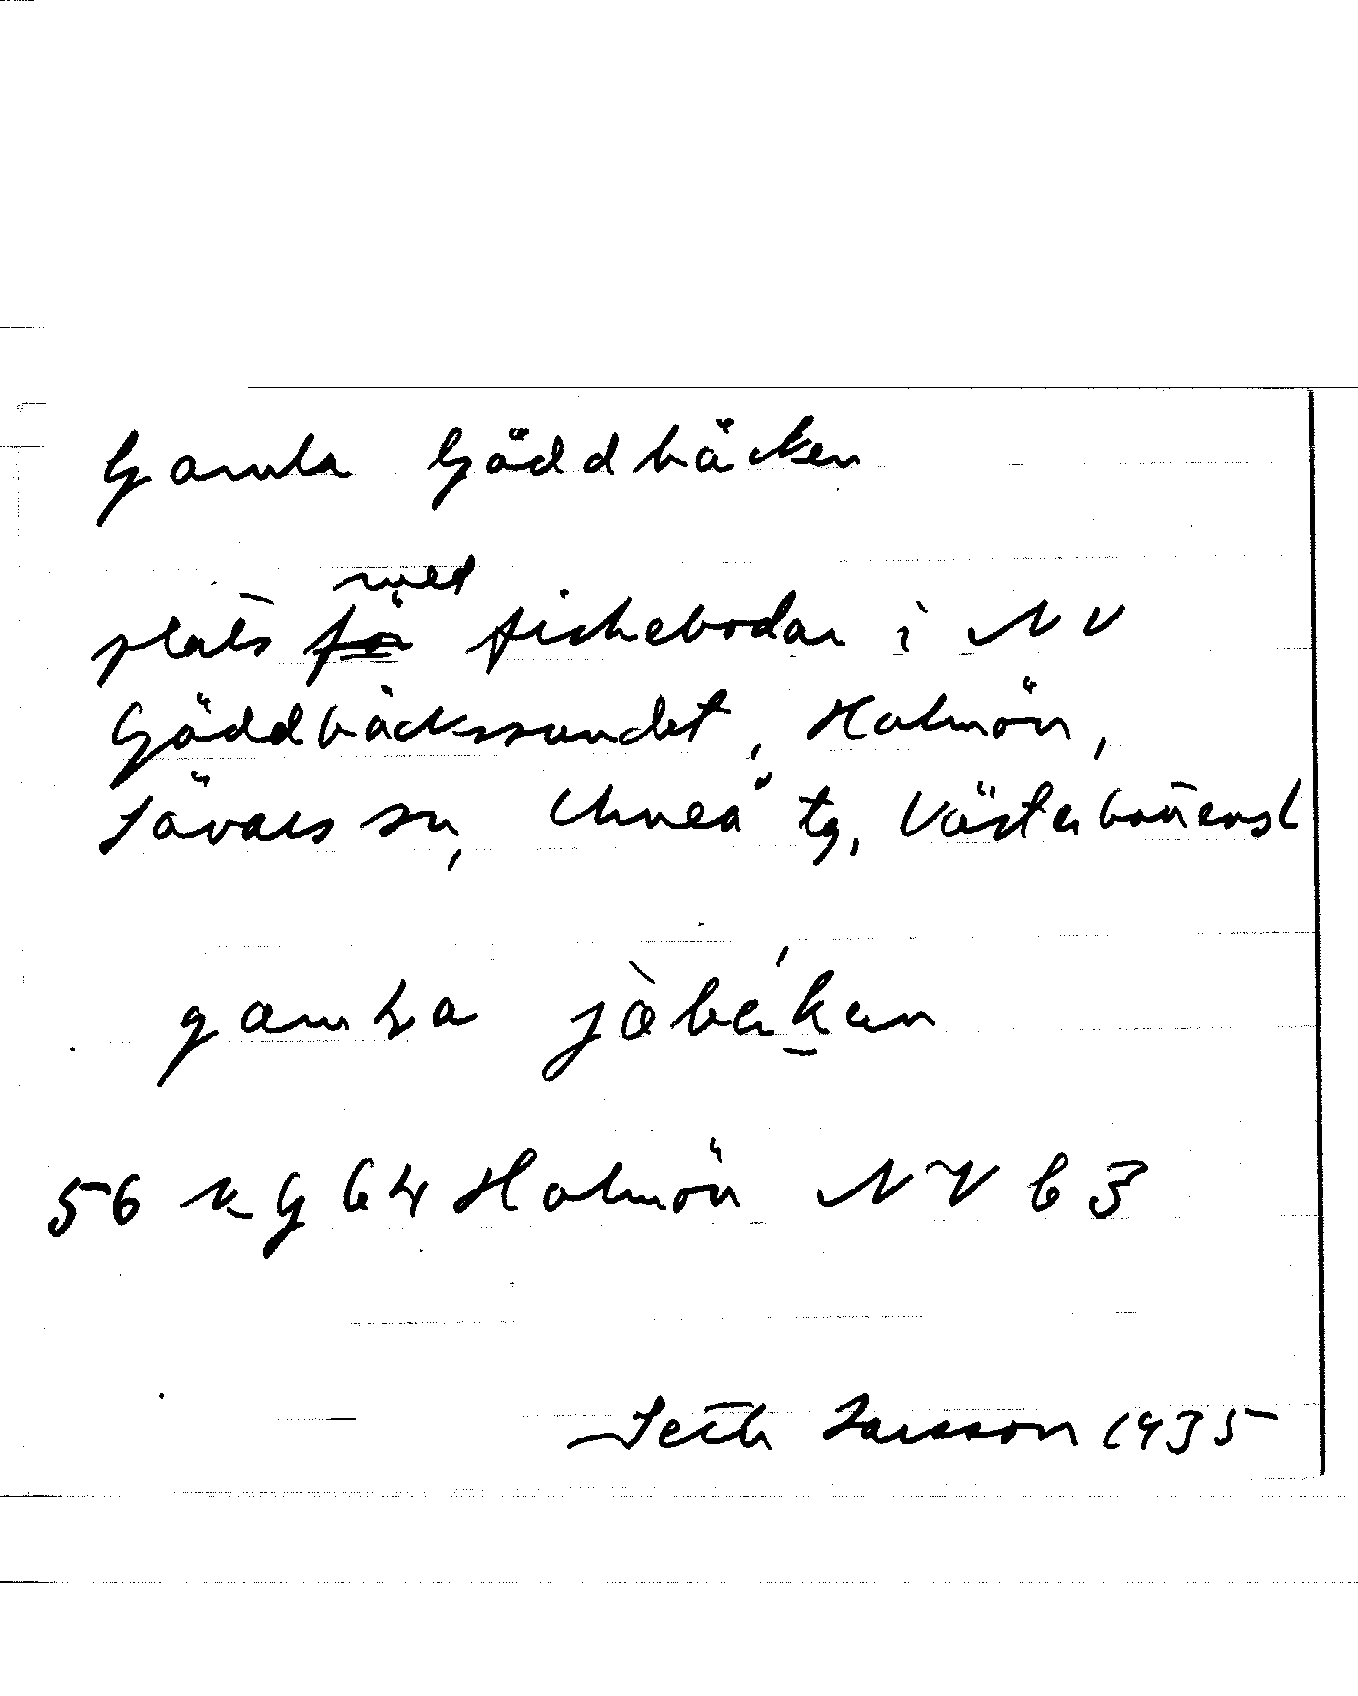 Gamla Gäddbäcken
med
plats för fiskebodar i NV
Gäddbäckssundet, Holmön,
Sävars sn, Umeå tg, Västerbottensl
56 Holmön NV b 3
Seth Larsson 1935